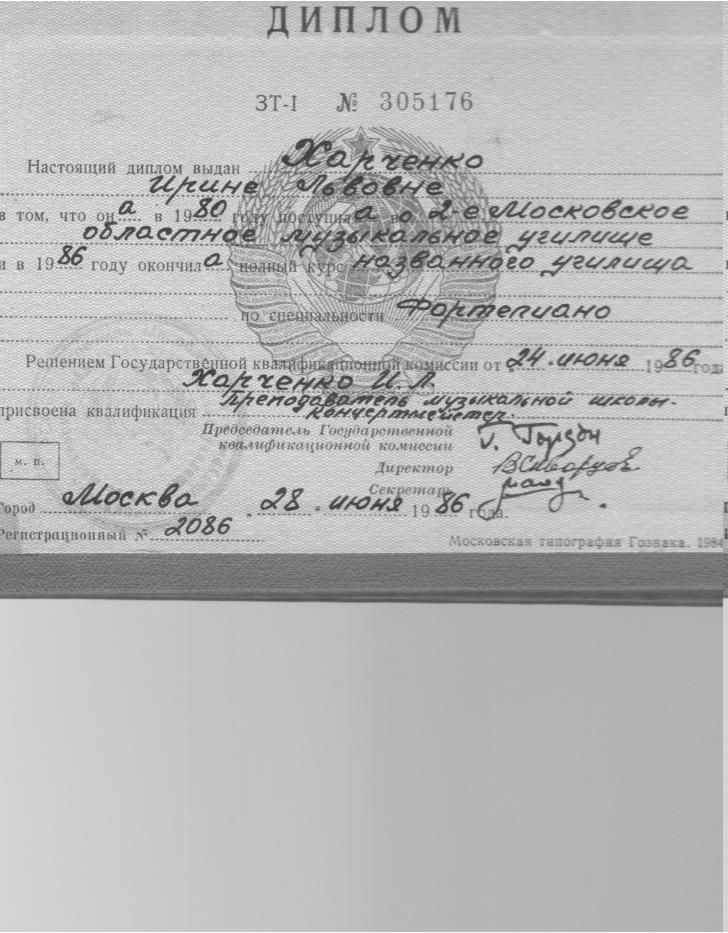 ДИПЛОМ
ЗТ-I № 305176
Настоящий диплом выдан Харченко
Ирине Львовне
в том, что она в 1980 году поступила во 2-е Московское
областное музыкальное училище
и в 1986 году окончила полный курс названного училища
по специальности Фортепиано
Решением Государственной квалификационной комиссии от 24 июня 1986 года
Харченко И. Л.
присвоена квалификация преподаватель музыкальной школы-
концертмейстер.
Председатель Государственной
квалификационной комиссии
м. п.
Директор
Секретарь
Город Москва „28" июня 1986 года.
Регистрационный № 2086
Московская типография Гознака. 1984